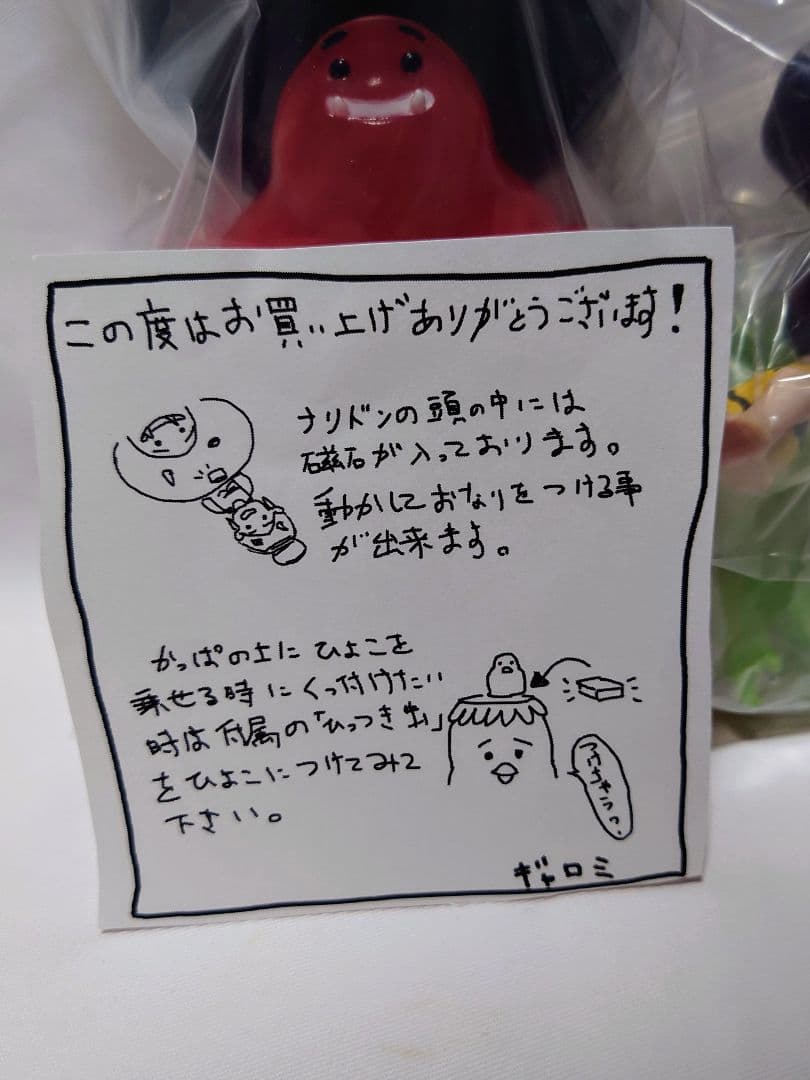 この度はお買い上げありがとうございます!
ナリドンの頭の中には
磁石が入っております。
動かしておなりをつける事
が出来ます。
かっぱの上にひよこを
乗せる時にくっ付けたい
時は付属の「ひっつき虫」
をひよこにつけてみて
下さい。
つけちゃうっ
ギャロミ